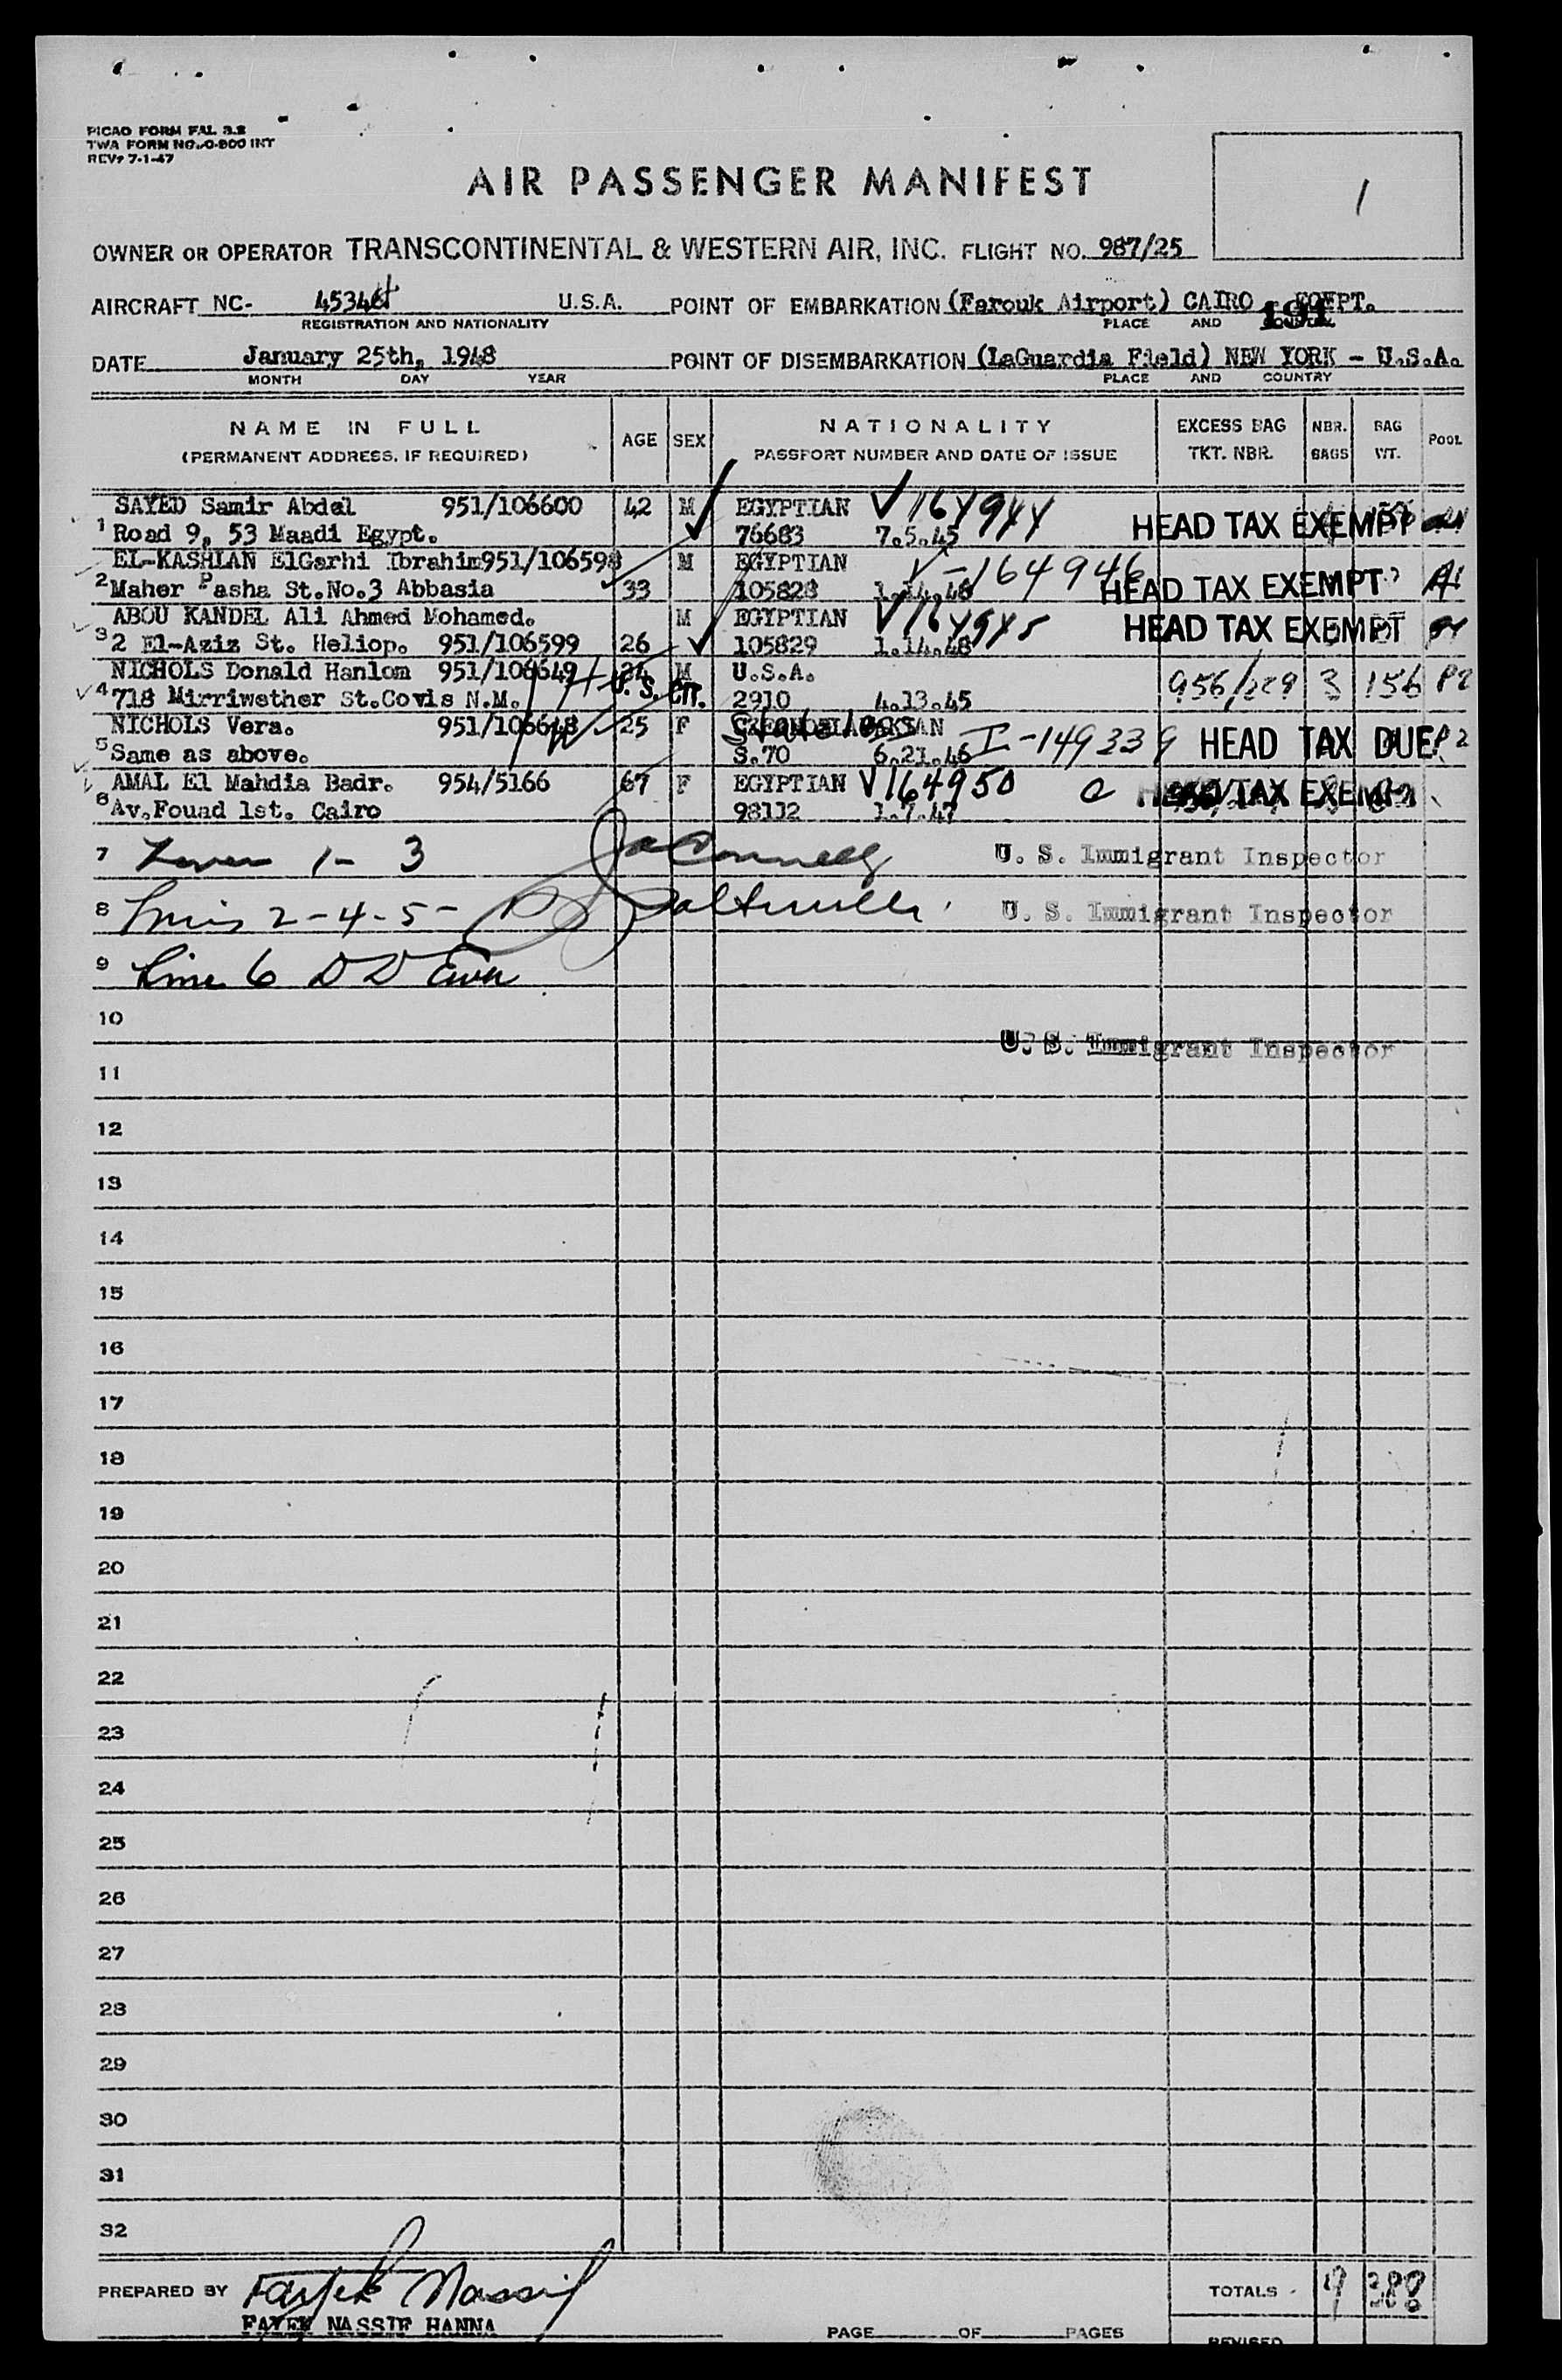 PICAO FORM FAL 3.2
TWA FORM NO. O-800 INT
REV. 7-1-47
1
AIR PASSENGER MANIFEST
OWNER OR OPERATOR TRANSCONTINENTAL & WESTERN AIR, INC. FLIGHT NO. 987/25
AIRCRAFT NC- 45346 U.S.A. POINT OF EMBARKATION (Farouk Airport) CAIRO EGYPT.
191
REGISTRATION AND NATIONALITY PLACE AND COUNTRY
DATE January 25th, 1948 POINT OF DISEMBARKATION (LaGuardia Field) NEW YORK - U.S.A.
MONTH DAY YEAR PLACE AND COUNTRY
NAME IN FULL AGE SEX NATIONALITY EXCESS BAG NBR. BAG POOL
(PERMANENT ADDRESS, IF REQUIRED) PASSPORT NUMBER AND DATE OF ISSUE TKT. NBR. BAGS WT.
SAYED Samir Abdel 951/106600 42 M EGYPTIAN V164944
1 Road 9, 53 Maadi Egypt. 76683 7.5.45 HEAD TAX EXEMPT
EL-KASHLAN ElGarhi Ibrahim951/106598 M EGYPTIAN V-164946
2 Maher Pasha St.No.3 Abbasia 33 105828 1.14.48 HEAD TAX EXEMPT A1
ABOU KANDEL Ali Ahmed Mohamed. M EGYPTIAN V164945 HEAD TAX EXEMPT
3 2 El-Aziz St. Heliop. 951/106599 26 105829 1.14.48
NICHOLS Donald Hanlom 951/106649 24 M U.S.A. 956/229 3 156 P2
4 718 Mirriwether St.Covis N.M. U.S. CIT. 2910 4.13.45
NICHOLS Vera. 951/106648 25 F Stateless I-149339 HEAD TAX DUE P2
5 Same as above. S.70 6.21.46
AMAL El Mahdia Badr. 954/5166 67 F EGYPTIAN V164950 HEAD TAX EXEMPT
6 Av.Fouad 1st. Cairo 98112 1.7.47
7 1- 3 U. S. Immigrant Inspector
8 Lines 2-4-5- U. S. Immigrant Inspector
9 Line 6
10
U. S. Immigrant Inspector
11
12
13
14
15
16
17
18
19
20
21
22
23
24
25
26
27
28
29
30
31
32
PREPARED BY Fayek Nassif TOTALS 9 388
FAYEK NASSIF HANNA
PAGE OF PAGES
REVISED